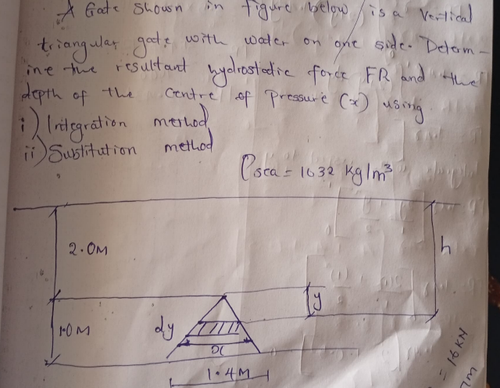 A Gate shown in figure below is a Vertical
triangular gate with water on one side. Determ-
ine the resultant hydrostatic force FR and the
depth of the centre of Pressure (x) using.
i) Integration method
ii) Substitution method
ρsea = 1032 kg/m³
2.0M
h
y
1.0M
dy
x
1.4M
= 16 KN
7m